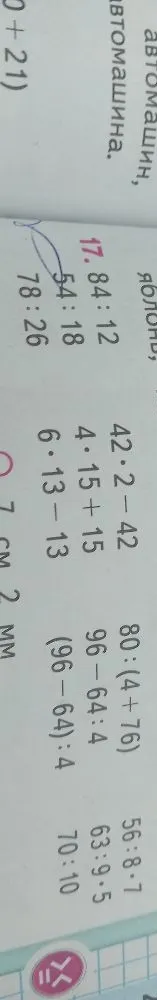 автомашин,
автомашина.
0 + 21)
яблонь,
17. 84 : 12 42 · 2 − 42 80 : (4 + 76) 56 : 8 · 7
54 : 18 4 · 15 + 15 96 − 64 : 4 63 : 9 · 5
78 : 26 6 · 13 − 13 (96 − 64) : 4 70 : 10
7 см 2 мм